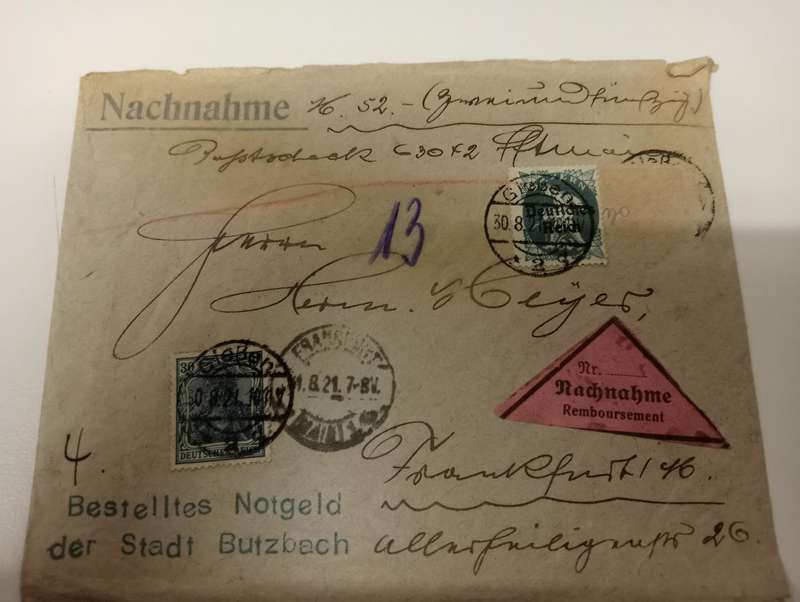 Nachnahme M. 52.- (Zweiundfünfzig)
Postscheck 63042
Gießen
30.8.21.
Deutsches
Reich
2
13
Herrn
Herm. Meyer,
30
Gießen
30.8.21.
DEUTSCHES REICH
FRANKFURT
31.8.21. 7-8V.
(MAIN) 1
Nr.
Nachnahme
Remboursement
4.
Frankfurt M.
Bestelltes Notgeld
der Stadt Butzbach
Allerheiligenstr 26.